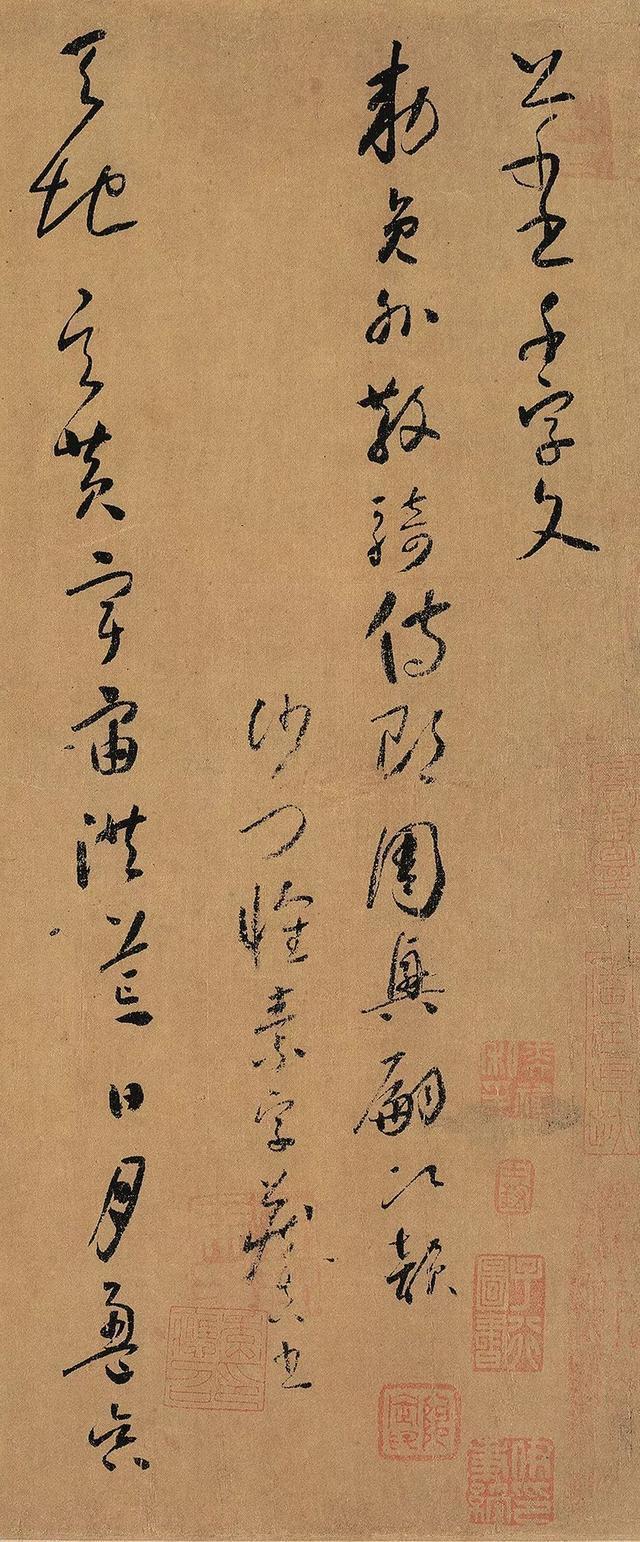 草書千字文
勅員外散騎侍郎周興嗣次韻
沙門懷素字藏真書
天地玄黃宇宙洪荒日月盈昃